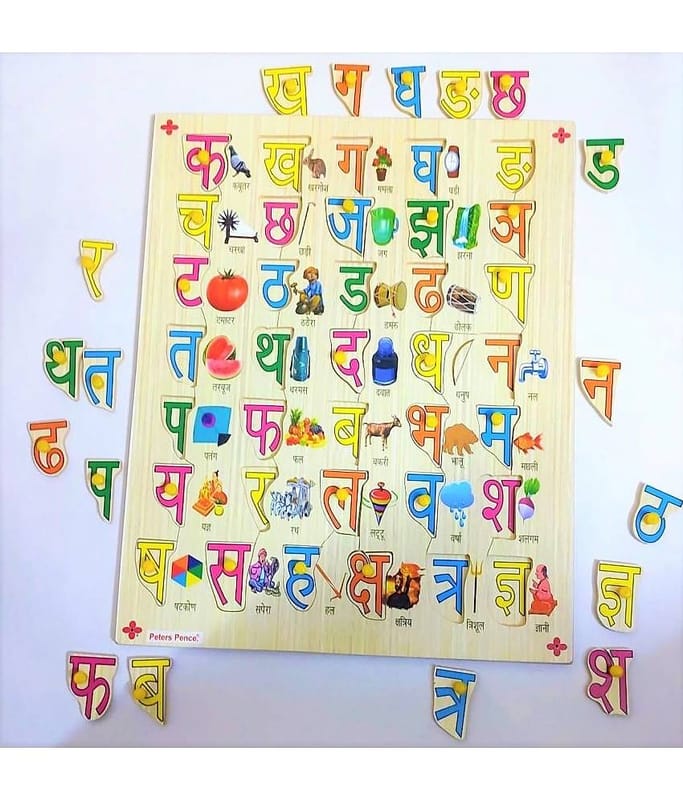 ख ग घ ङ छ
ड
क ख ग घ ङ
कबूतर खरगोश गमला घड़ी
च छ ज झ ञ
चरखा छड़ी जग झरना
र
ट ठ ड ढ ण
टमाटर ठठेरा डमरू ढोलक
थ त
त थ द ध न
तरबूज थरमस दवात धनुष नल
न
ढ
प फ ब भ म
पतंग फल बकरी भालू मछली
प
य र ल व श
यज्ञ रथ लट्टू वर्षा शलगम
ठ
ष स ह क्ष त्र ज्ञ
षटकोण सपेरा हल क्षत्रिय त्रिशूल ज्ञानी
ज्ञ
Peters Pence
फ ब त्र श